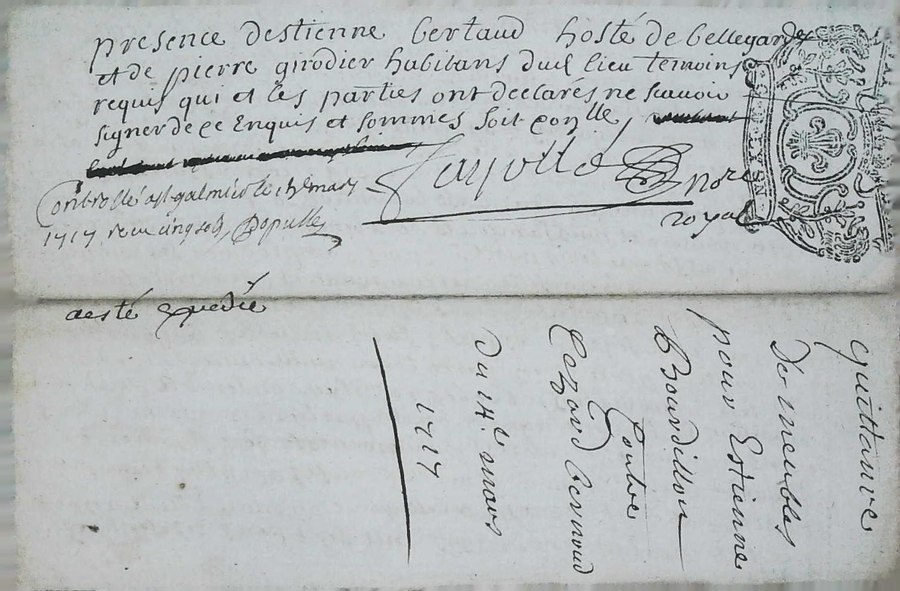 presence destienne bertaud hosté de bellegarde
et de pierre girodier habitans dud lieu temoins
requis qui et les parties ont declarés ne scavoir
signer de ce Enquis et sommes soit conlle
nore
royal
Controllé a st galmier le mars
1717 receu cinq sols Populle
a esté expediée
quittance
de meubles
pour Estienne
Bourdillon
Contre
bernoud
du 14e mars
1717